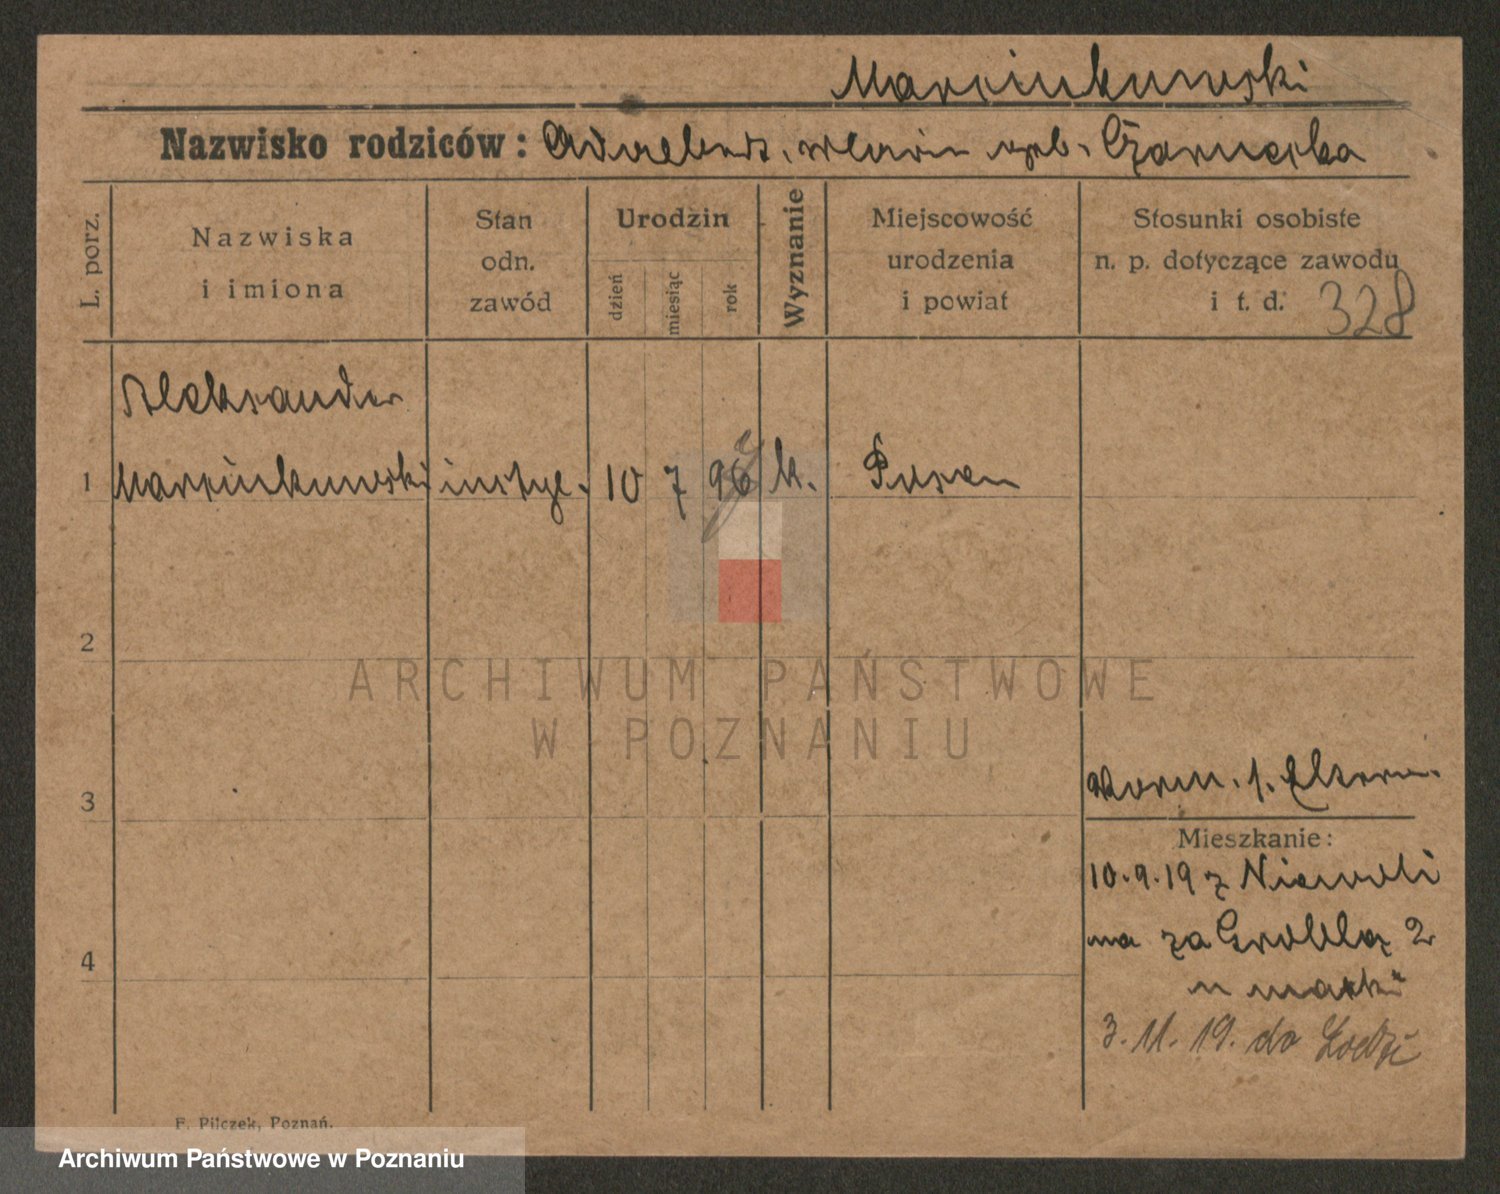 Marcinkowski
Nazwisko rodziców: Adalbert, Maria geb. Czarnecka
L. porz.
Nazwiska
i imiona
Stan
odn.
zawód
Urodzin
dzień
miesiąc
rok
Wyznanie
Miejscowość
urodzenia
i powiat
Stosunki osobiste
n. p. dotyczące zawodu
i t. d. 328
Aleksander
1 Marcinkowski 10 7 96 k. Posen
2
ARCHIWUM PAŃSTWOWE
W POZNANIU
3
Mieszkanie:
10.9.19 z Niewoli
na za Groblą 2
u matki
4
3.11.19. do Łodzi
F. Pilczek, Poznań.
Archiwum Państwowe w Poznaniu